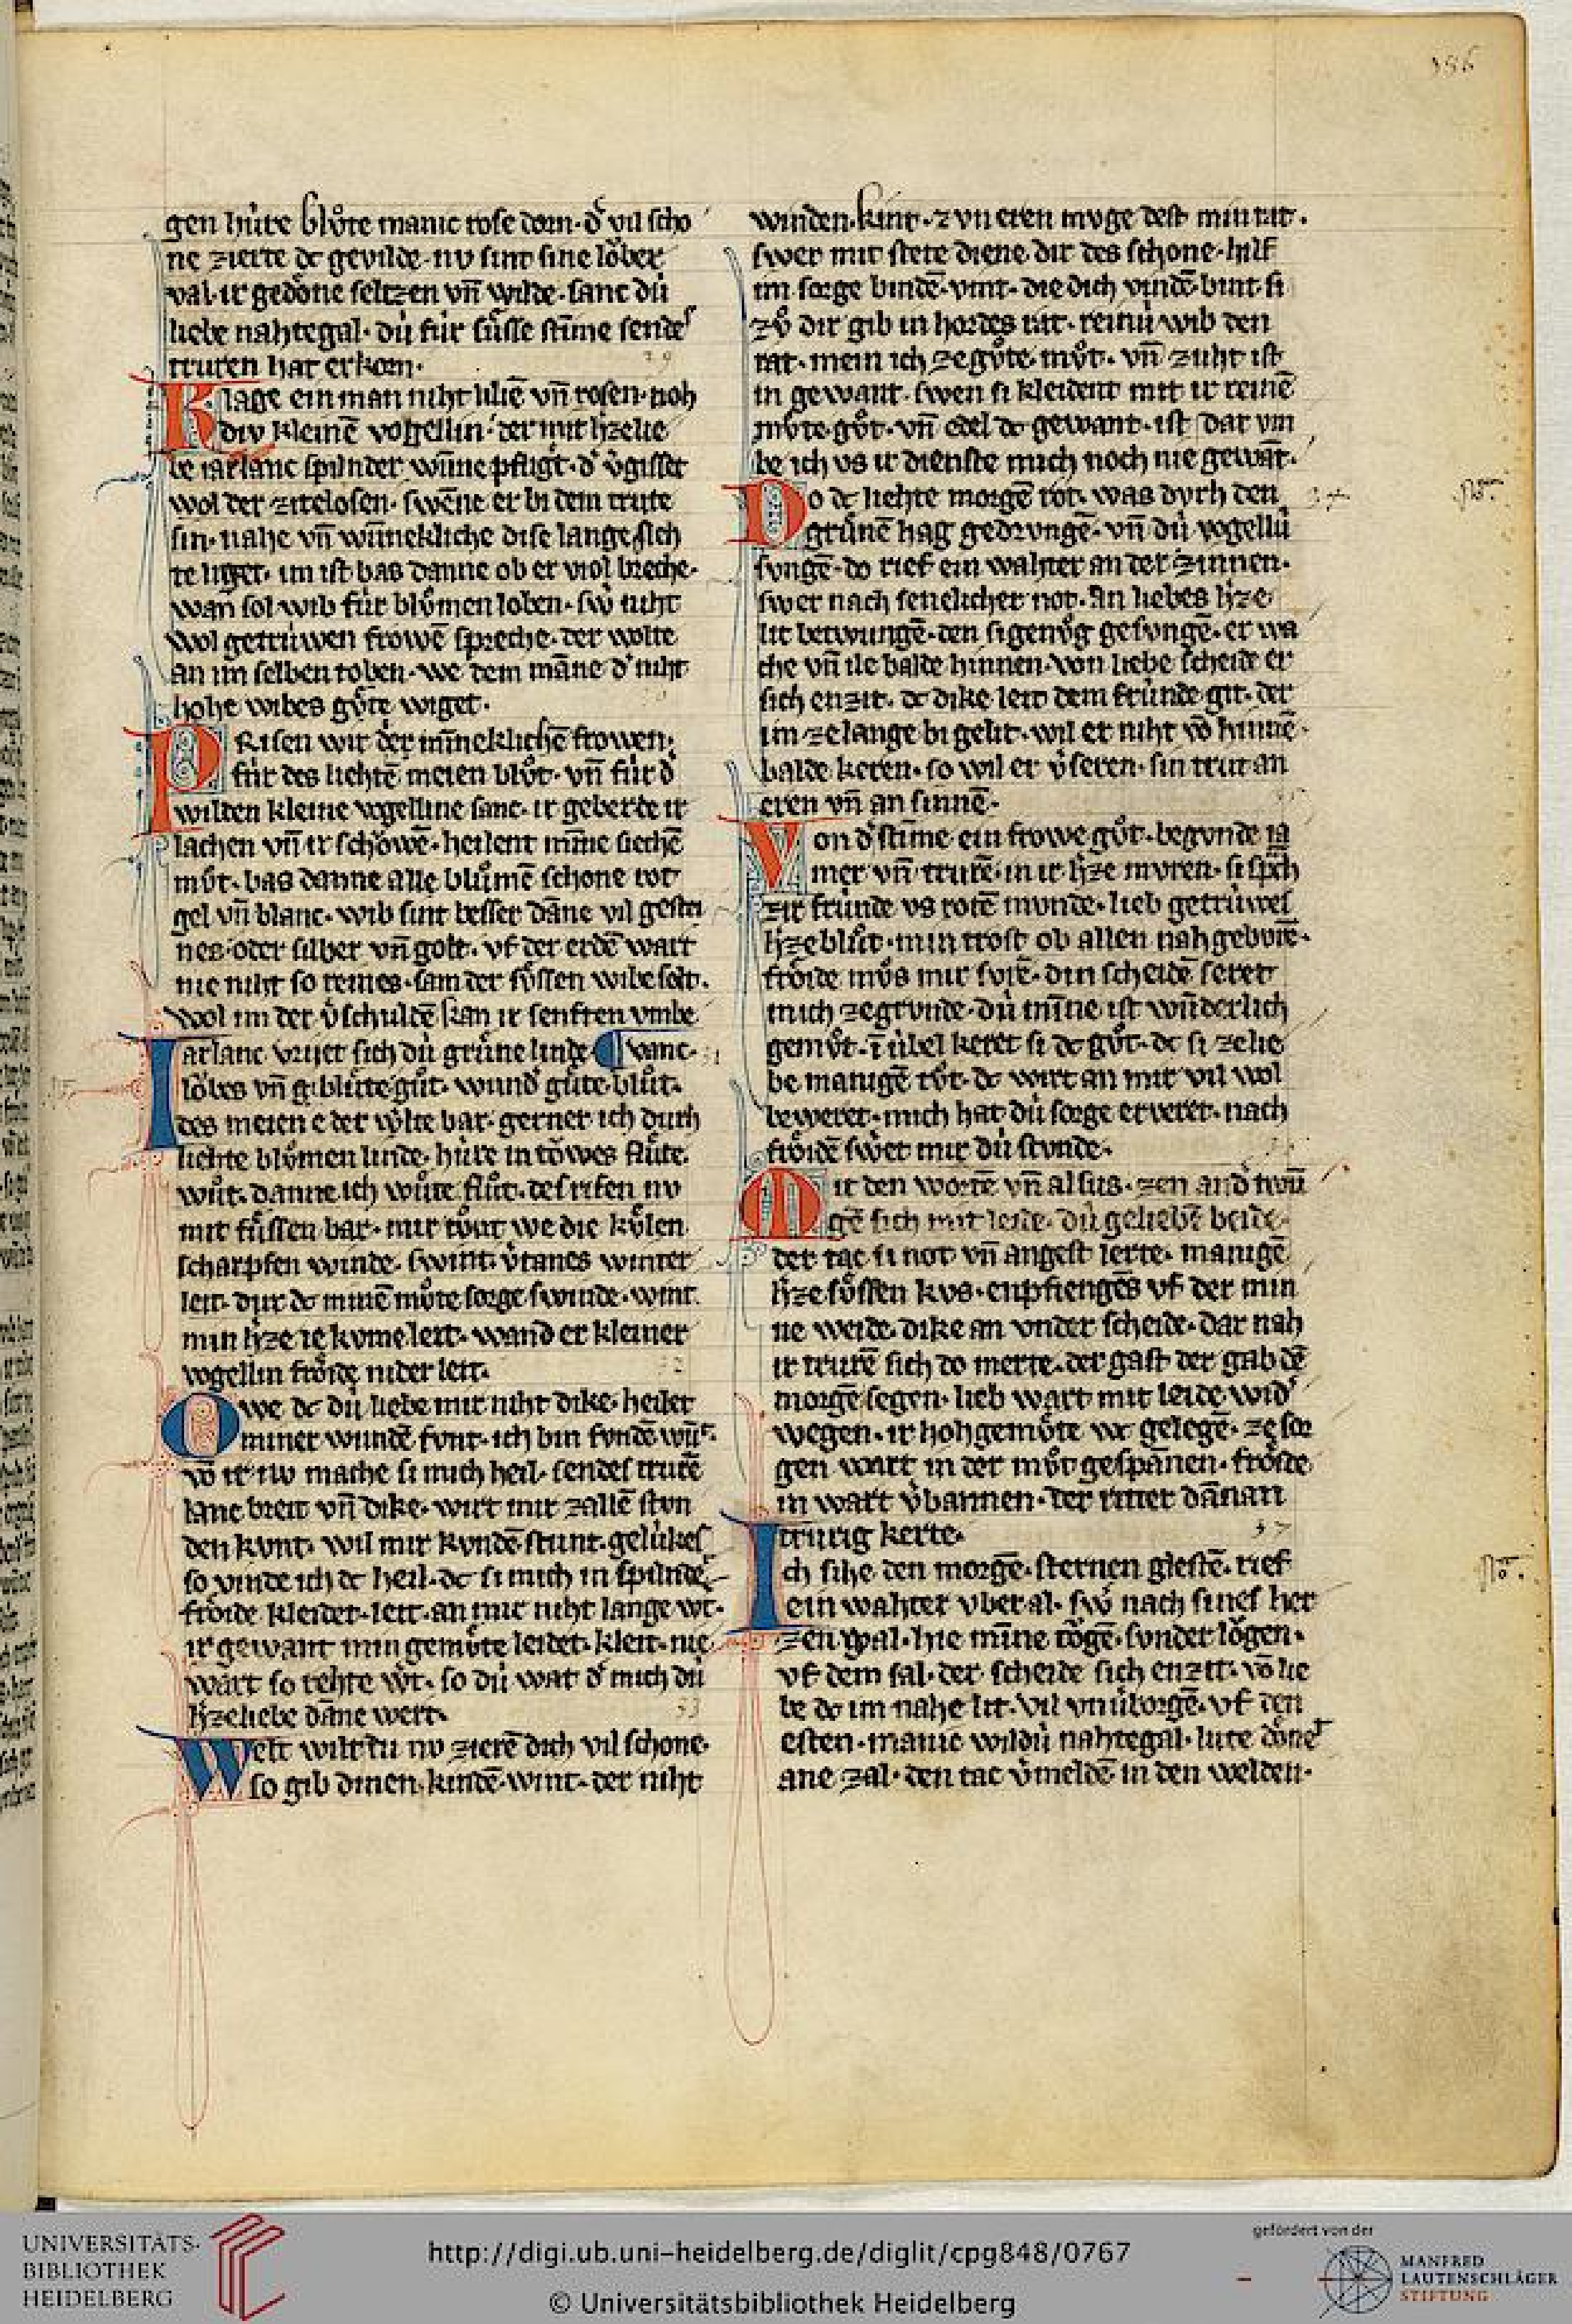 386
gen hùre blᵒte manic rose dorn · d͛ vil scho
ne zierte dc gevilde · nv sint sine lᵒber
val · ir gedᵒne seltzen vn̄ wilde · sanc dù
liebe nahtegal · dù fùr sᵒsse stīme sendeſ
truren hat erkorn ·
29
Klage ein man niht liliē vn̄ rosen · noh
div kleinē vogellin · der mit h͛zelie
be iarlanc spilnder wūne pfligt · d͛ v͛gisset
wol der zitelosen · swēne er bi dem trute
sin · nahe vn̄ wūnekliche dise lange sich
te liget · im ist bas danne ob er viol breche ·
wan sol wib fùr blᵒmen loben · sw͛ niht
wol getrùwen frowē spreche · der wolte
an im selben toben · we dem māne d͛ niht
hohe wibes gᵒte wiget ·
PRisen wir der mīneklichē frowen ·
fùr des liehtē meien blᵒt · vn̄ fùr d͛
wilden kleine vogelline sanc · ir geberde ir
lachen vn̄ ir schᵒwē · heilent mīne siechē
mᵒt · bas danne alle blᵒmē schone rot
gel vn̄ blanc · wib sint besser dāne vil gestei
nes · oder silber vn̄ golt · vf der erdē wart
nie niht so reines · sam der sᵒssen wibe solt ·
wol im der v͛schuldē kan ir senften vmbe
Iarlanc vrijet sich dù grᵒne linde ¶ vanc ·
lᵒbes vn̄ gblᵒte gᵒt · wund͛ gᵒte blᵒt ·
des meien e der w͛lte bar · gerner ich durh
liehte blᵒmen linde · hùre in tᵒwes flᵒte ·
wᵒt · danne ich wᵒte flᵒt · des rifen nv
mit fᵒssen bar · mir tᵒnt we die kᵒlen
scharpfen winde · swint v͛tanes winter
leit · dur dc minē mᵒte sorge swinde · wint
min h͛ze ie kvme leit · wand er kleiner
vogellin frᵒide nider leit ·
32
Owe dc dù liebe mir niht dike · heilet
miner wundē funt · ich bin fundē wūt ·
vō ir nv mache si mich heil · sendeſ trurē
lanc breit vn̄ dike · wirt mir zallē ston
den kunt · wil mir kundē stunt · gelùkeſ
so vinde ich dc heil · dc si mich in spilnde
frᵒide kleidet · leit · an mir niht lange w͛t ·
ir gewant min gemᵒte leidet · kleit · nie
wart so rehte w͛t · so dù wat d͛ mich dù
h͛zeliebe dāne wert ·
33
Welt wilt du nv zierē dich vil schone ·
so gib dinen kindē wint · der niht
winden · kint · zvn eren mvge dest min rat ·
swer mit stete diene dir des schone · hilf
im sorge bindē · vint · die dich vindē bint · si
zᵒ dir gib in hordes rat · reinù wib den
rat · mein ich ze gᵒte mᵒt · vn̄ zuht ist
in gewant · swen si kleident mit ir reinē
mᵒte gᵒt · vn̄ edel dc gewant · ist dar vm
be ich vs ir dienste mich noch nie gewāt ·
34
Do dc liehte morgē rot · was dvrh den
grᵒnē hag gedrvngē · vn̄ dù vogellù
svngē · do rief ein wahter an der zinnen ·
swer nach senelicher not · an liebes h͛ze
lit betwungē · den si genᵒg gesvngē · er wa
che vn̄ ile balde hinnen · von liebe scheide er
sich enzit · dc dike leit dem frùnde git · der
im ze lange bi gelit · wil er niht vō hinnē ·
balde keren · so wil er v͛seren · sin trut an
eren vn̄ an sinnē ·
35
Von d͛ stīme ein frowe gᵒt · begvnde ia
mer vn̄ trurē · in ir h͛ze mvren · si sp͛ch
zir frùnde vs rotē mvnde · lieb getrùweſ
h͛ze blᵒt · min trost ob allen nahgeburē ·
frᵒide mᵒs mir svrē · din scheidē seret
mich ze grvnde · dù mīne ist wūderlich
gemᵒt · ī ùbel keret si dc gᵒt · dc si ze lie
be manigē tᵒt · dc wirt an mir vil wol
beweret · mich hat dù sorge erveret · nach
frᵒidē swēt mir dù stvnde ·
Mit den wortē vn̄ alsus · zen and͛ twū
gē sich mit leide · dù geliebē beide ·
der tac si not vn̄ angest lerte · manigē
h͛ze sᵒssen kvs · enpfiengēs vf der min
ne weide · dike an vnder scheide · dar nah
ir trurē sich do merte · der gast der gab dē
morgē segen · lieb wart mit leide wid͛
wegen · ir hohgemᵒte wc gelegē · ze sor
gen wart in der mᵒt gespānen · frᵒide
in wart v͛bannen · der ritter dānan
trurig kerte ·
37
Ich sihe den morgē · sternen glestē · rief
ein wahter vberal · sw͛ nach sineſ her
zen wal · hie mīne tᵒgē · svnder lᵒgen ·
vf dem sal · der scheide sich enzit · vō lie
be dc im nahe lit · vil vnv͛borgē · vf den
esten · manic wildù nahtegal · lute dᵒnet
ane zal · den tac v͛meldē in den welden ·
UNIVERSITÄTS-
BIBLIOTHEK
HEIDELBERG
http://digi.ub.uni-heidelberg.de/diglit/cpg848/0767
© Universitätsbibliothek Heidelberg
gefördert von der
MANFRED
LAUTENSCHLÄGER
STIFTUNG